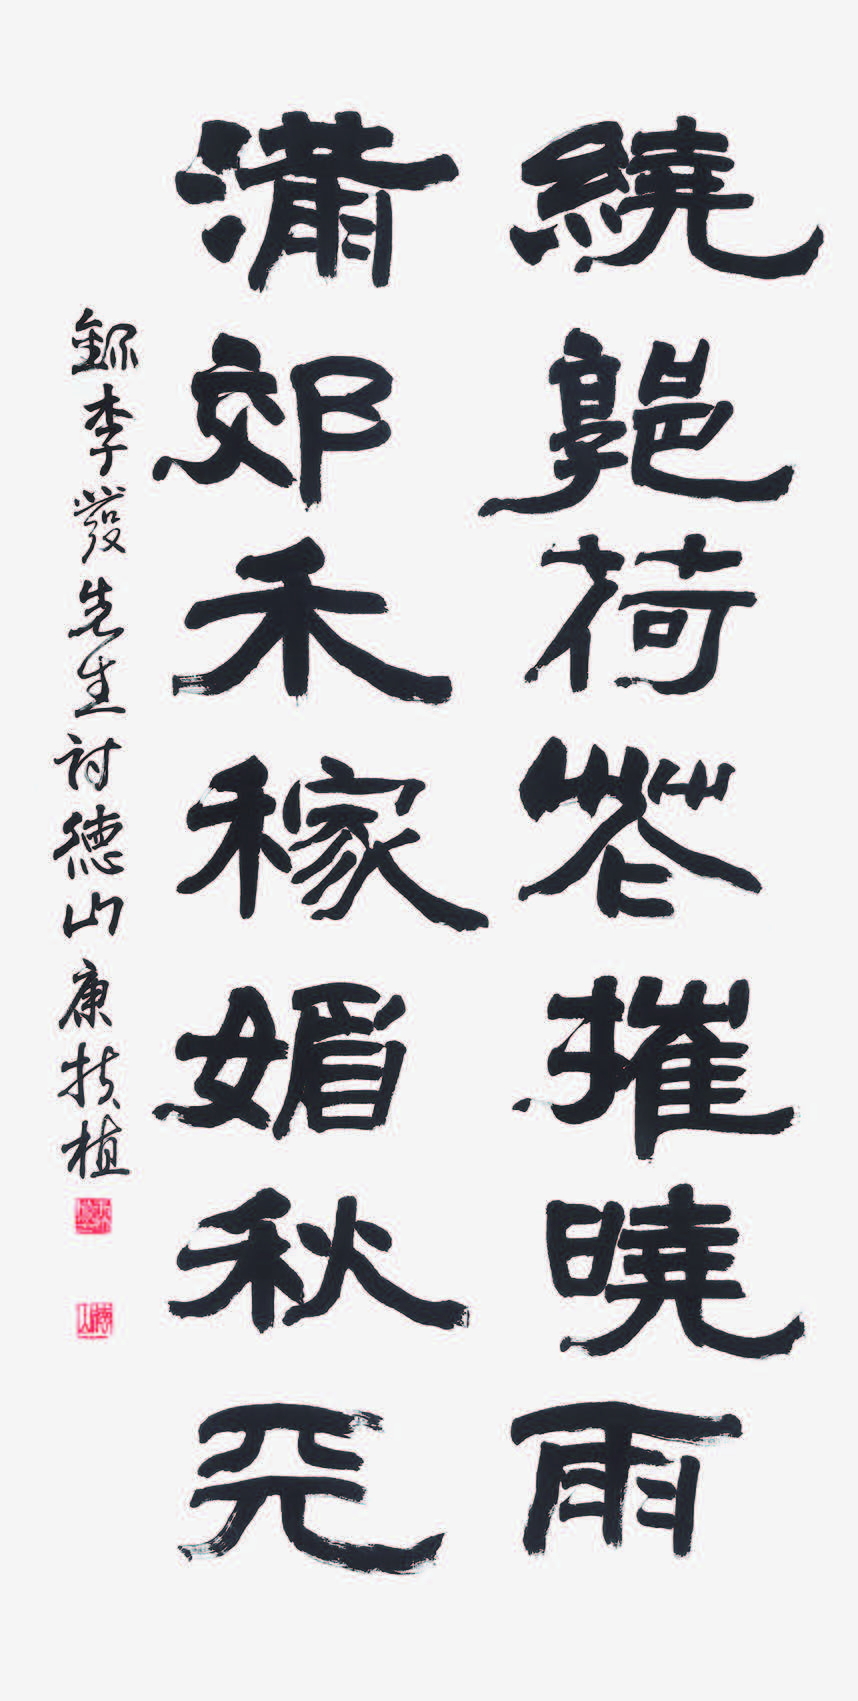 繞郭荷花摧曉雨
滿郊禾稼媚秋天
錄李發先生詩德山康扶植